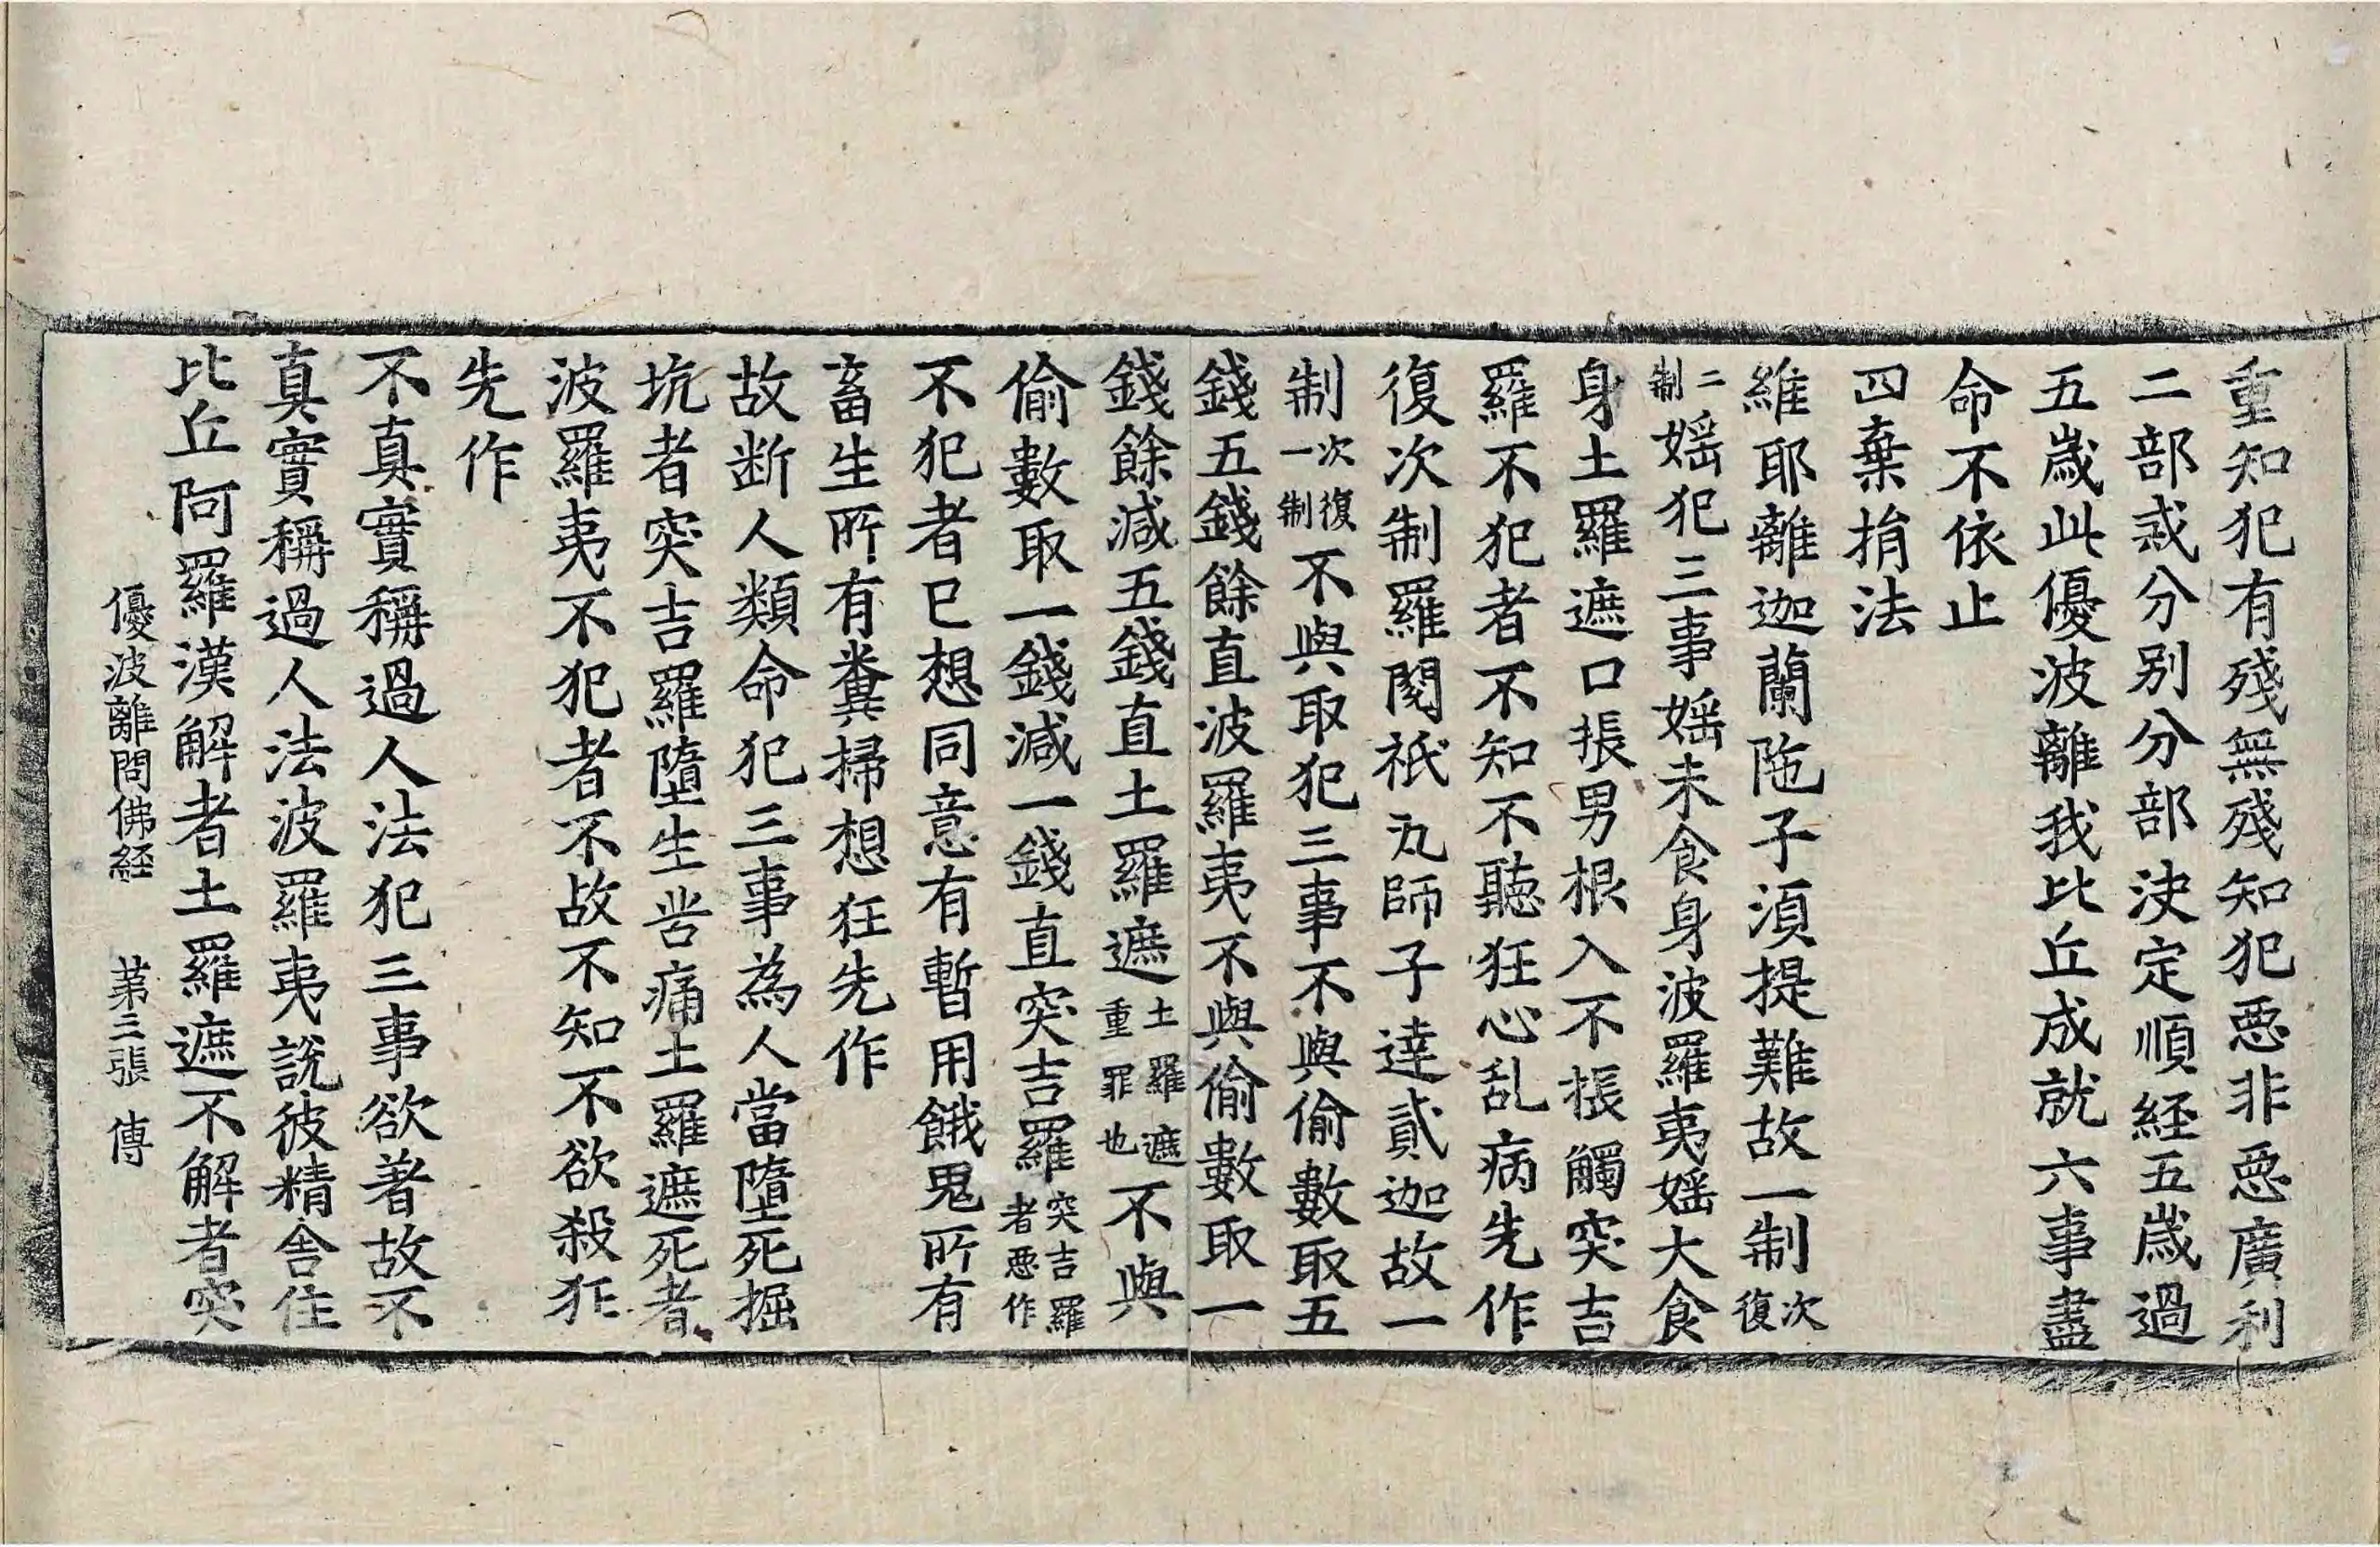 重知犯有殘無殘知犯悪非悪廣利
二部或分別分部决定順経五歲過
五歲此優波離我比丘成就六事盡
命不依止
四棄捐法
維耶離迦蘭陁子湏提難故一制次復
二制婬犯三事婬未食身波羅夷婬大食
身土羅遮口張男根入不張觸突吉
羅不犯者不知不聽狂心乱病先作
復次制羅閱祇瓦師子達貳迦故一
制次一復制不與取犯三事不與偷數取五
錢五錢餘直波羅夷不與偷數取一
錢餘減五錢直土羅遮土羅遮重罪也不與
偷數取一錢減一錢直突吉羅突吉羅者悪作
不犯者已想同意有暫用餓鬼所有
畜生所有糞掃想狂先作
故断人類命犯三事為人當墮死掘
坑者突吉羅墮生苦痛土羅遮死者
波羅夷不犯者不故不知不欲殺狂
先作
不真實稱過人法犯三事欲著故不
真實稱過人法波羅夷說彼精舍住
比丘阿羅漢解者土羅遮不解者突
優波離問佛経 苐三張 傳